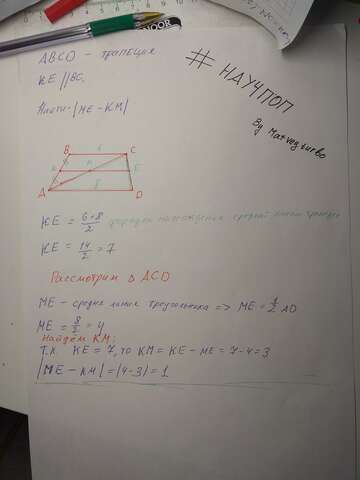 ABCD - трапеция
KE || BC.
Найти: |ME - KM|
# НАУЧПОП
By Matvey turbo
B 6 C
K M E
A 8 D
KE = \frac{6+8}{2} формула нахождения средней линии трапеции
KE = \frac{14}{2} = 7
Рассмотрим Δ ACD
ME - средняя линия треугольника => ME = \frac{1}{2} AD
ME = \frac{8}{2} = 4
Найдём KM:
Т.к. KE = 7, то KM = KE - ME = 7-4 = 3
|ME - KM| = |4-3| = 1